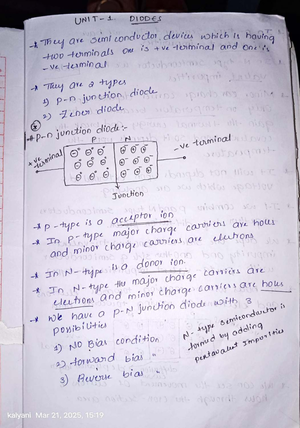 UNIT-1 DIODES
* They are semi conductor devices which is having
two terminals one is +ve terminal and one is
-ve terminal
* They are 2 types
1) p-n junction diode
2) Zener diode
* P-n junction diode:-
P N
+ve terminal
-ve terminal
Junction
* p-type is a acceptor ion
* In P-type major charge carriers are holes
and minor charge carriers are electrons
* In N-type is a donor ion
* In N-type the major charge carriers are
electrons and minor charge carriers are holes
* We have a p-N junction diode with 3
possibilities
1) NO Bias condition
2) forward bias "
3) Reverse bias "
N-type semiconductor is
formed by adding
pentavalent impurities
kalyani Mar 21, 2025, 15:19